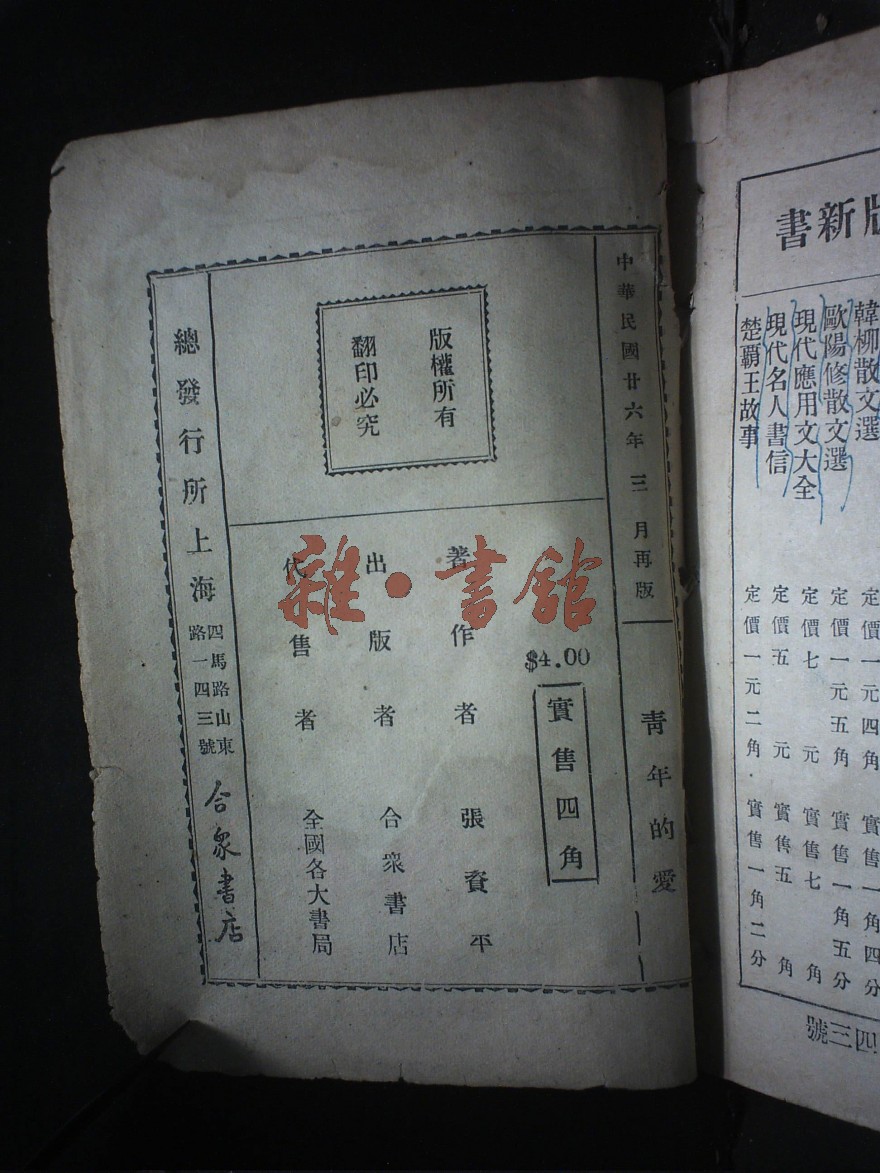 中華民國廿六年三月再版
青年的愛
版權所有
翻印必究
$4.00
實售四角
著作者 張資平
出版者 合衆書店
代售者 全國各大書局
總發行所上海四馬路山東路一四三號合衆書店
雜·書館
版新書
韓柳散文選 定價一元四角 實售一角四分
歐陽修散文選 定價一元五角 實售一角五分
現代應用文大全 定價七元 實售七角
現代名人書信 定價五元 實售五角
楚霸王故事 定價一元二角 實售一角二分
四三號